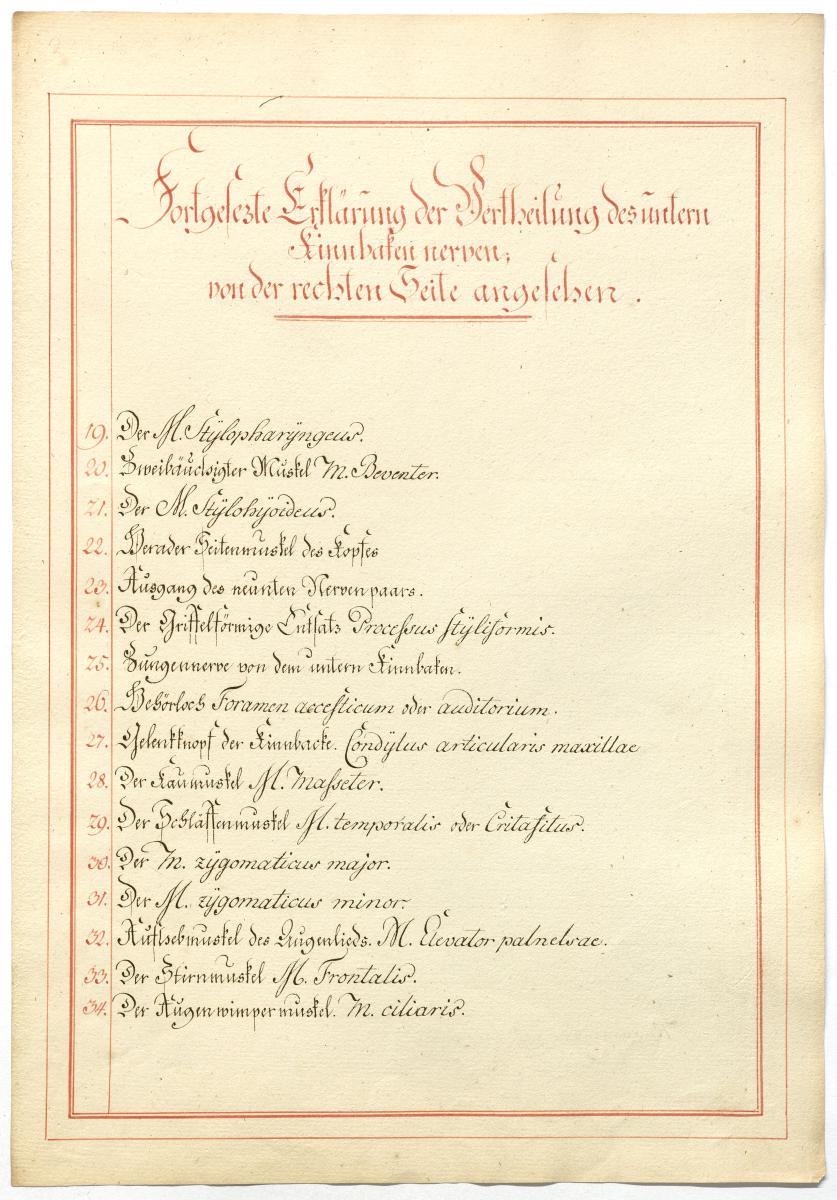 Fortgesezte Erklärung der Vertheilung des untern
Kinnbaken nerven,
von der rechten Seite angesehen.
19. Der M. Stÿlopharÿngeus.
20. Zweibäuchigter Muskel M. Beventer.
21. Der M. Stÿlohÿoideus.
22. Gerader Seitenmuskel des Kopfes
23. Ausgang des neunten Nervenpaars.
24. Der Griffelförmige Entsatz Processus stÿliformis.
25. Zungennerve von dem untern Kinnbaken.
26. Gehörloch Foramen accesticum oder auditorium.
27. Gelenkknopf der Kinnbacke. Condÿlus articularis maxillae
28. Der Kaumuskel M. Masseter.
29. Der Schläffenmuskel M. temporalis oder Critafitus.
30. Der M. zÿgomaticus major.
31. Der M. zÿgomaticus minor.
32. Aufhebmuskel des Augenlieds. M. Elevator palnebrae.
33. Der Stirnmuskel M. Frontalis.
34. Der Augenwimpermuskel. M. ciliaris.